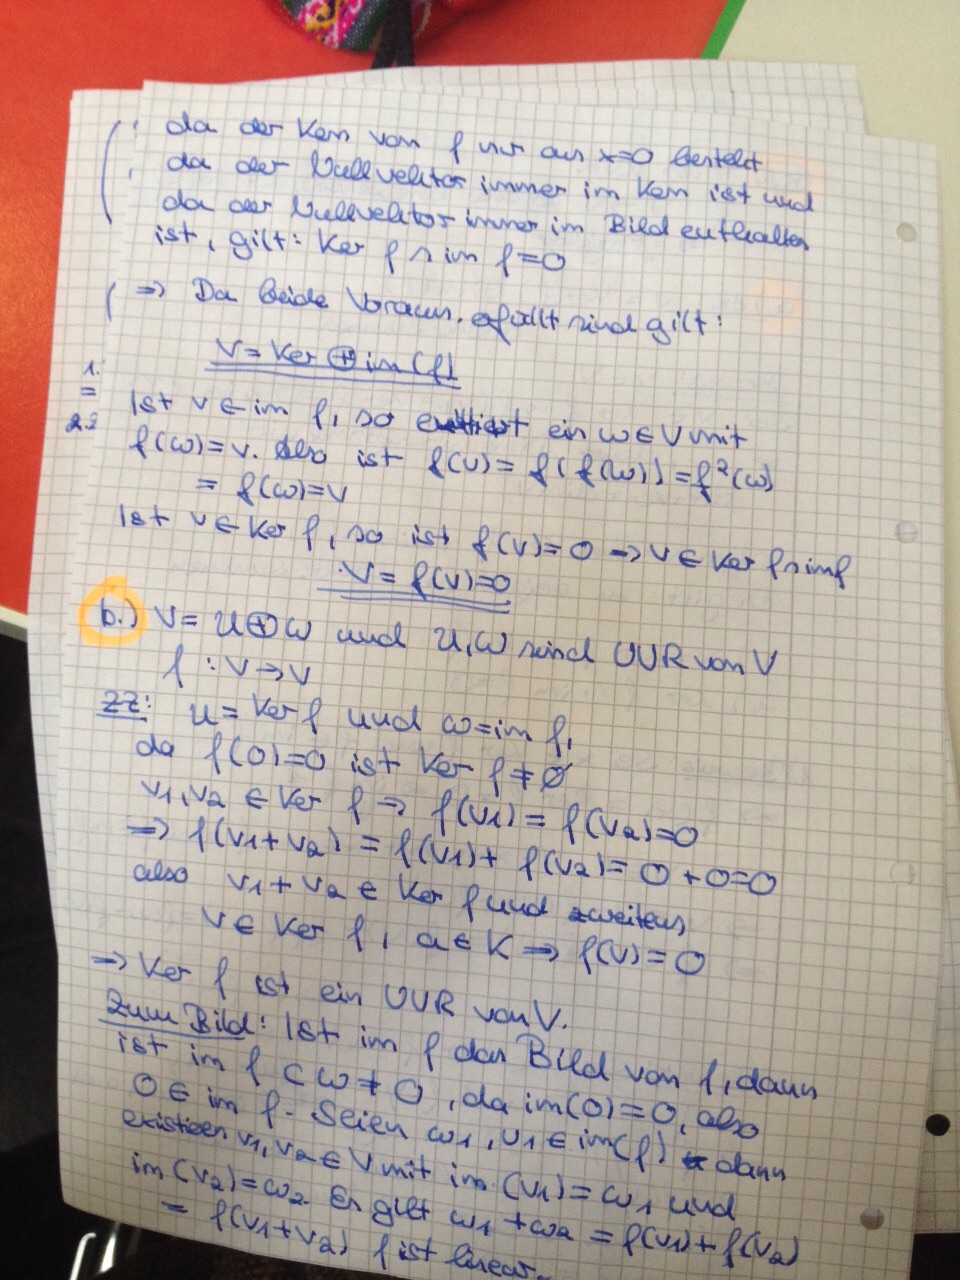 da der Kern von f nur aus x=0 besteht
da der Nullvektor immer im Kern ist und
da der Nullvektor immer im Bild enthalten
ist, gilt: Ker f ∩ im f=0
=> Da beide Voraus. erfüllt sind gilt:
V= Ker ⊕ im (f)
1.
2.
Ist v ∈ im f, so existiert ein ω∈V mit
f(ω)=v. Also ist f(v)= f(f(ω))=f²(ω)
= f(ω)=v
Ist v∈ Ker f, so ist f(v)=0 → v∈ Ker f∩imf
V= f(v)=0
b.) V= U⊕W und U,W sind UVR von V
f : V→V
ZZ: U= Ker f und W=im f,
da f(0)=0 ist Ker f ≠ Ø
v1,v2 ∈ Ker f => f(v1) = f(v2)=0
=> f(v1+v2) = f(v1)+ f(v2)= 0+0=0
also v1+v2 ∈ Ker f und zweitens
v∈ Ker f, a∈K => f(v)=0
=> Ker f ist ein UVR von V.
Zum Bild: Ist im f das Bild von f, dann
ist im f ⊂ W ≠ 0, da im(0)=0, also
0 ∈ im f. Seien ω1, v1 ∈ im(f) dann
existieren v1,v2∈V mit im (v1)=ω1 und
im (v2)=ω2. Es gilt ω1+ω2 = f(v1)+f(v2)
= f(v1+v2) f ist linear.